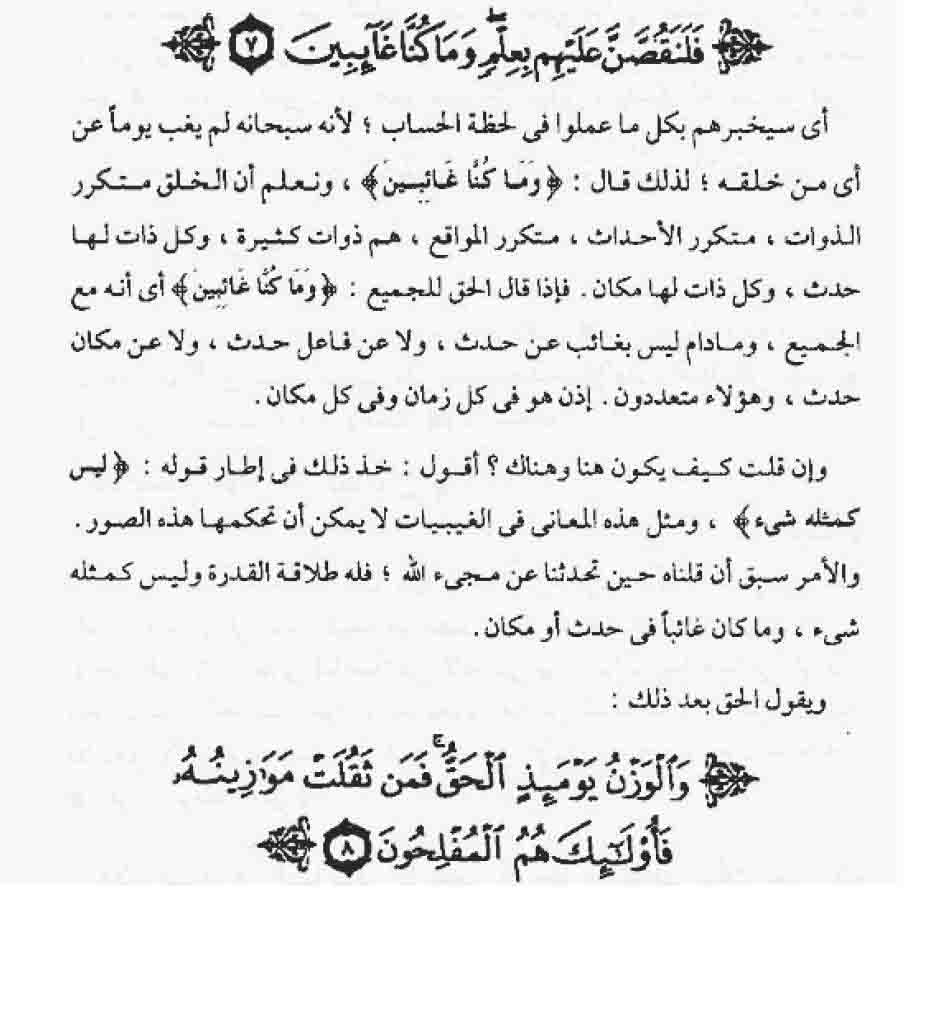 فَلَنَقُصَّنَّ عَلَيْهِم بِعِلْمٍ ۖ وَمَا كُنَّا غَآئِبِينَ ٧
أى سيخبرهم بكل ما عملوا فى لحظة الحساب ؛ لأنه سبحانه لم يغب يوماً عن
أى من خلقه ؛ لذلك قال : ﴿ وَمَا كُنَّا غَائِبِينَ ﴾ ، ونعلم أن الخلق متكرر
الذوات ، متكرر الأحداث ، متكرر المواقع ، هم ذوات كثيرة ، وكل ذات لها
حدث ، وكل ذات لها مكان . فإذا قال الحق للجميع : ﴿ وَمَا كُنَّا غَائِبِينَ ﴾ أى أنه مع
الجميع ، ومادام ليس بغائب عن حدث ، ولا عن فاعل حدث ، ولا عن مكان
حدث ، وهؤلاء متعددون . إذن هو فى كل زمان وفى كل مكان .
وإن قلت كيف يكون هنا وهناك ؟ أقول : خذ ذلك فى إطار قوله : ﴿ ليس
كمثله شىء ﴾ ، ومثل هذه المعانى فى الغيبيات لا يمكن أن تحكمها هذه الصور .
والأمر سبق أن قلناه حين تحدثنا عن مجىء الله ؛ فله طلاقة القدرة وليس كمثله
شىء ، وما كان غائباً فى حدث أو مكان .
ويقول الحق بعد ذلك :
وَٱلْوَزْنُ يَوْمَئِذٍ ٱلْحَقُّ ۚ فَمَن ثَقُلَتْ مَوَٰزِينُهُۥ
فَأُو۟لَـٰٓئِكَ هُمُ ٱلْمُفْلِحُونَ ٨